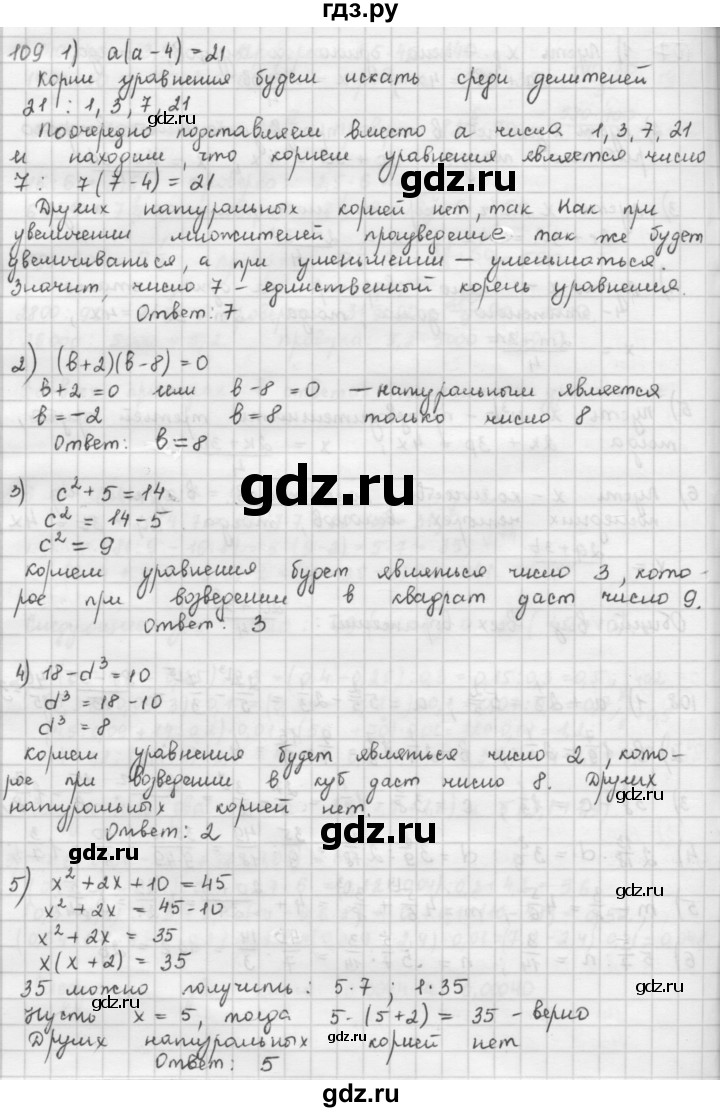 гдз.ру
109 1) a(a-4)=21
Корни уравнения будем искать среди делителей
21: 1, 3, 7, 21
Поочередно подставляем вместо a числа 1, 3, 7, 21
и находим, что корнем уравнения является число
7: 7(7-4)=21
gdz.ru
Других натуральных корней нет, так как при
увеличении множителей произведение так же будет
увеличиваться, а при уменьшении — уменьшаться.
Значит, число 7 – единственный корень уравнения.
Ответ: 7
gdz.ru
2) (в+2)(в-8)=0
в+2=0 или в-8=0 — натуральным является
в=-2 в=8 только число 8
Ответ: в=8
gdz.ru
3) c²+5=14
c²=14-5
c²=9
Корнем уравнения будет являться число 3, кото-
рое при возведении в квадрат даст число 9.
Ответ: 3
gdz.ru
4) 18-d³=10
d³=18-10
d³=8
Корнем уравнения будет являться число 2, кото-
рое при возведении в куб даст число 8. Других
натуральных корней нет.
Ответ: 2
gdz.ru
gdz.ru
gdz.ru
5) x²+2x+10=45
x²+2x=45-10
x²+2x=35
x(x+2)=35
35 можно получить: 5·7; 1·35
Пусть x=5, тогда 5·(5+2)=35 - верно
Других натуральных корней нет
Ответ: 5
gdz.ru
gdz.ru
gdz.ru